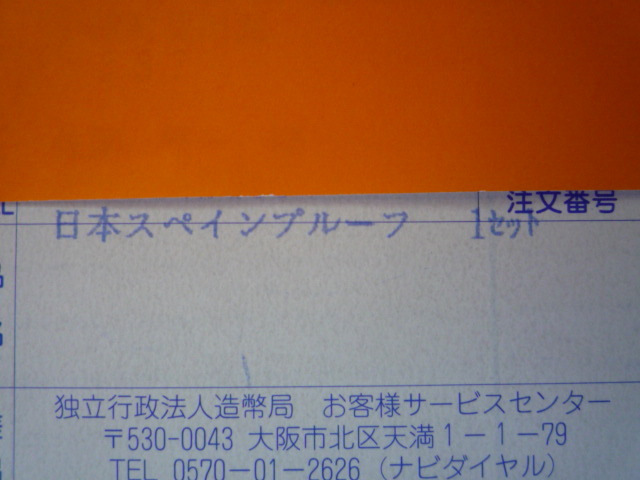 注文番号
日本スペインプルーフ 1セット
独立行政法人造幣局 お客様サービスセンター
〒530-0043 大阪市北区天満1－1－79
TEL 0570－01－2626（ナビダイヤル）